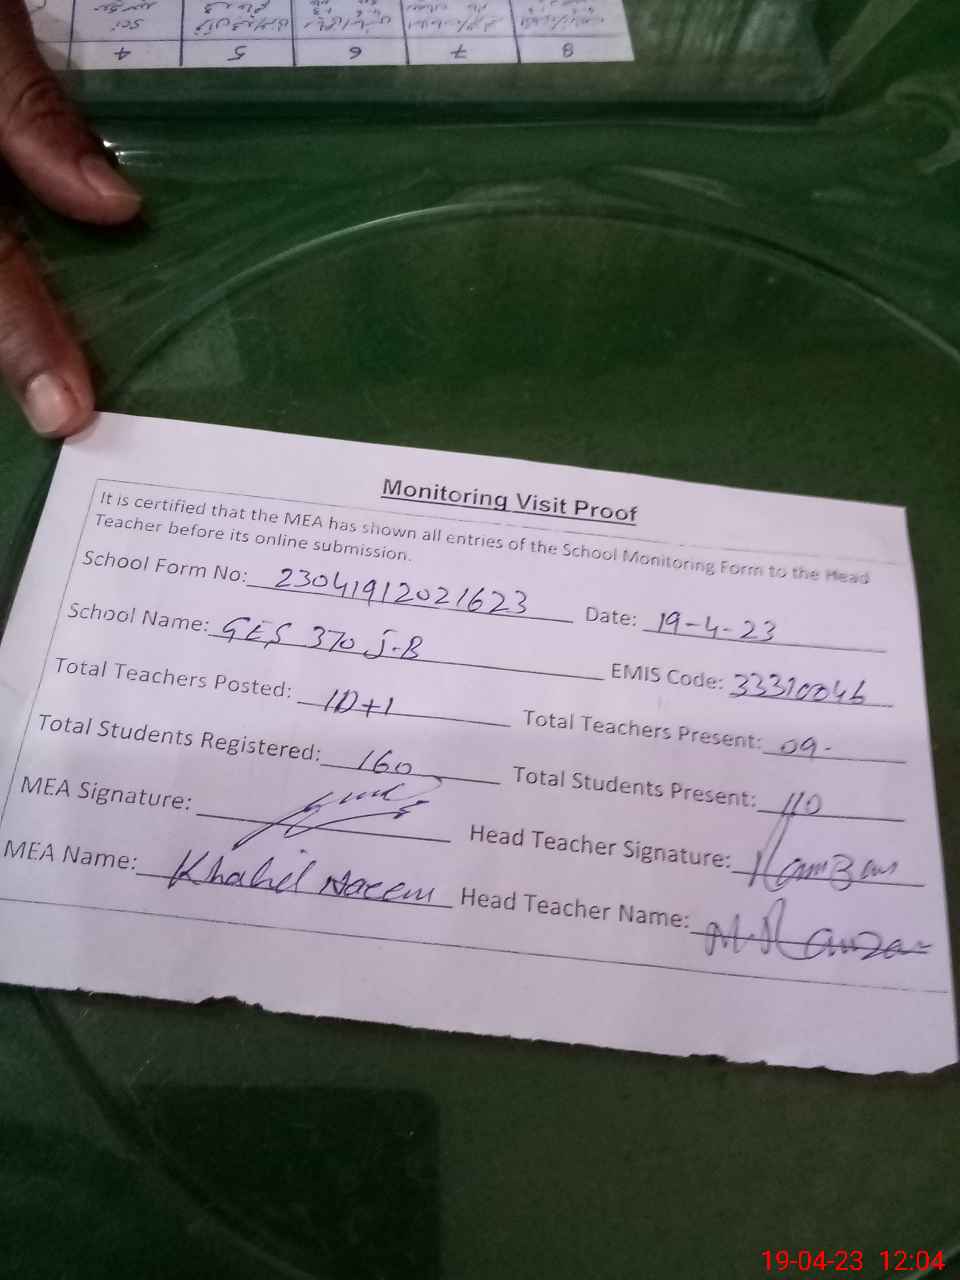 8 7 6 5 4
Sci
Monitoring Visit Proof
It is certified that the MEA has shown all entries of the School Monitoring Form to the Head
Teacher before its online submission.
School Form No: 23041912021623 Date: 19-4-23
School Name: GES 370 J-B EMIS Code: 33310046
Total Teachers Posted: 10+1 Total Teachers Present: 09-
Total Students Registered: 160 Total Students Present: 110
MEA Signature: Head Teacher Signature:
MEA Name: Khalid Naeem Head Teacher Name: M. Ramzan
19-04-23 12:04